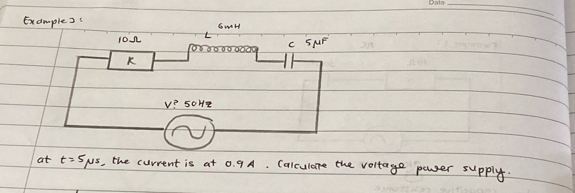 Date
Example 2:
6mH
10Ω L C 5μF
R
V? 50Hz
at t=5μs, the current is at 0.9A. Calculate the voltage power supply.